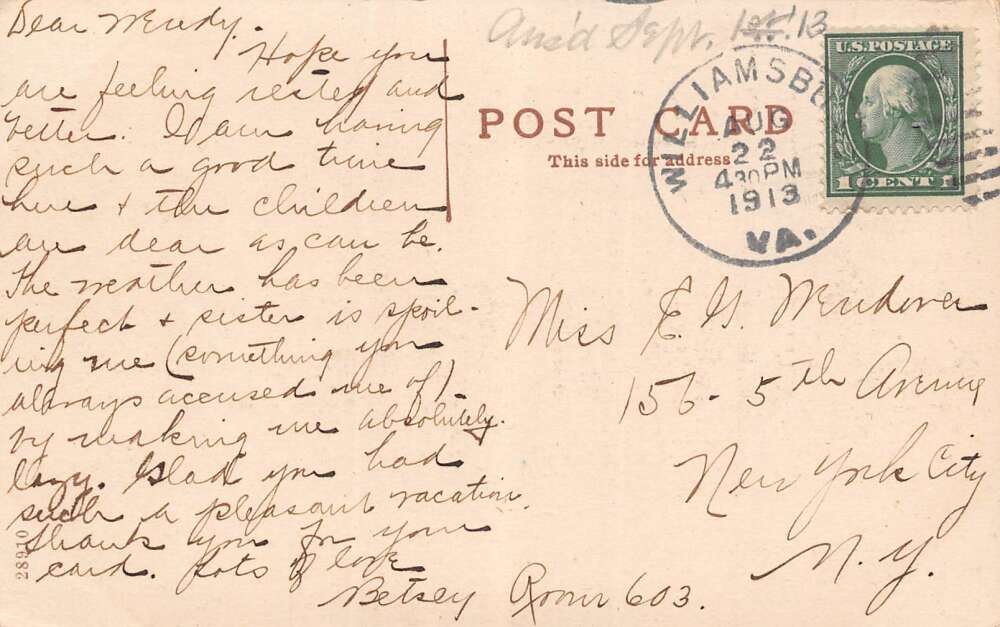 Dear Wendy.
Hope you
are feeling rested and
better. I am having
such a good time
here + the children
are dear as can be.
The weather has been
perfect + sister is spoil-
ing me (something you
always accused me of)
by making me absolutely
lazy. Glad you had
such a pleasant vacation.
Thank you for your
card. Lots of love
Betsey
28910
Ans'd Sept. 1st '13
POST CARD
This side for address
WILLIAMSBU
AUG
22
430 PM
1913
VA.
U.S. POSTAGE
1 CENT 1
Miss E. G. Wendover
156 - 5th Avenue
New York City
N.Y.
Room 603.